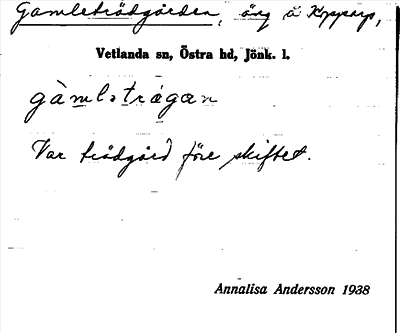 Gamleträdgården, äng å Kopparp,
Vetlanda sn, Östra hd, Jönk. l.
gàmlətrágan
Var trädgård före skiftet.
Annalisa Andersson 1938